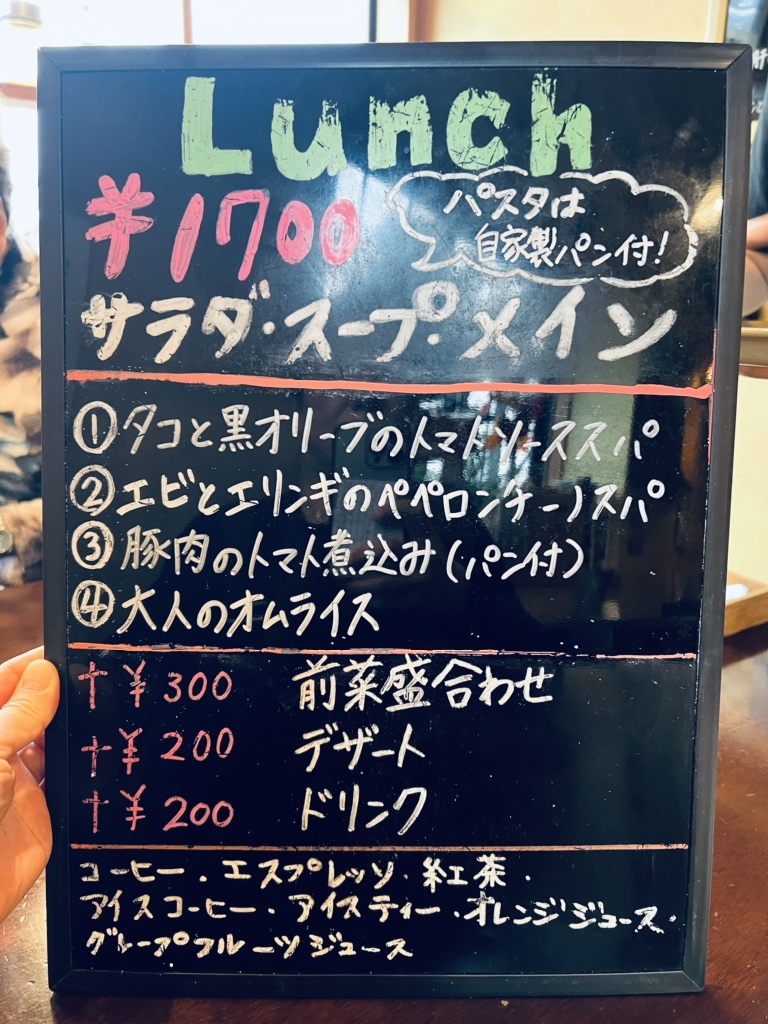 Lunch
¥1700
パスタは
自家製パン付!
サラダ・スープ・メイン
①タコと黒オリーブのトマトソーススパ
②エビとエリンギのペペロンチーノスパ
③豚肉のトマト煮込み(パン付)
④大人のオムライス
+¥300 前菜盛合わせ
+¥200 デザート
+¥200 ドリンク
コーヒー・エスプレッソ・紅茶・
アイスコーヒー・アイスティー・オレンジジュース・
グレープフルーツジュース